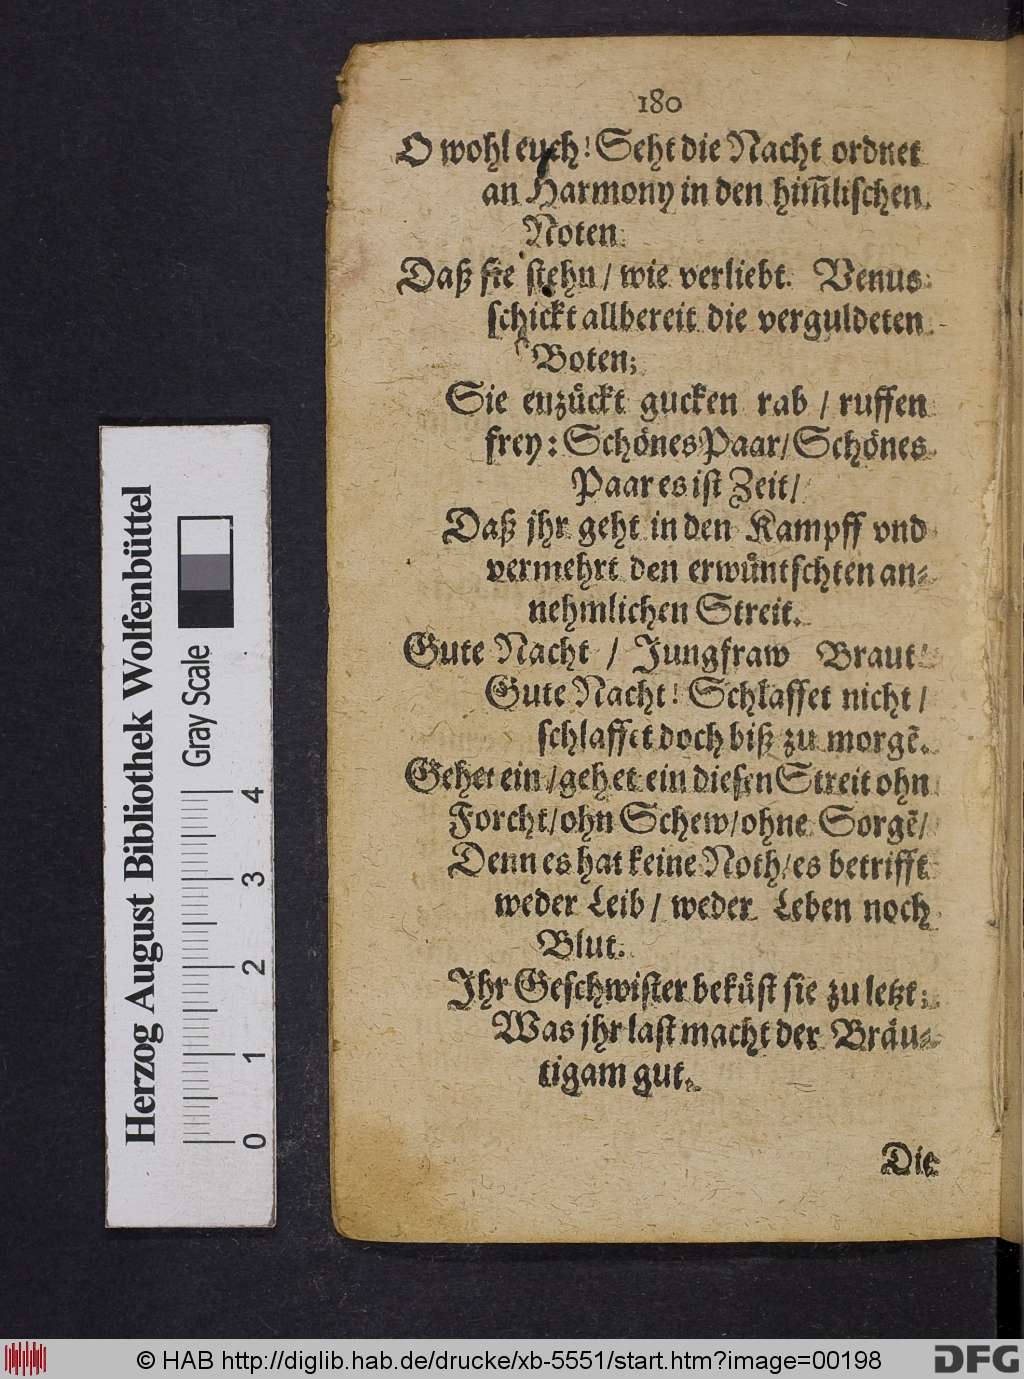 180
O wohl euch! Seht die Nacht ordnet
an Harmony in den him̃lischen
Noten.
Daß sie stehn / wie verliebt. Venus
schickt allbereit die verguldeten
Boten;
Sie enzückt gucken rab / ruffen
frey: Schönes Paar / Schönes
Paar es ist Zeit /
Daß jhr geht in den Kampff vnd
vermehrt den erwüntschten an-
nehmlichen Streit.
Gute Nacht / Jungfraw Braut /
Gute Nacht! Schlaffet nicht /
schlaffet doch biß zu morgẽ.
Gehet ein / gehet ein diesen Streit ohn
Forcht / ohn Schew / ohne Sorgẽ /
Denn es hat keine Noth / es betrifft
weder Leib / weder Leben noch
Blut.
Ihr Geschwister beküst sie zu letzt;
Was jhr last macht der Bräu-
tigam gut.
Die
Herzog August Bibliothek Wolfenbüttel
Gray Scale
0 1 2 3 4
© HAB http://diglib.hab.de/drucke/xb-5551/start.htm?image=00198
DFG